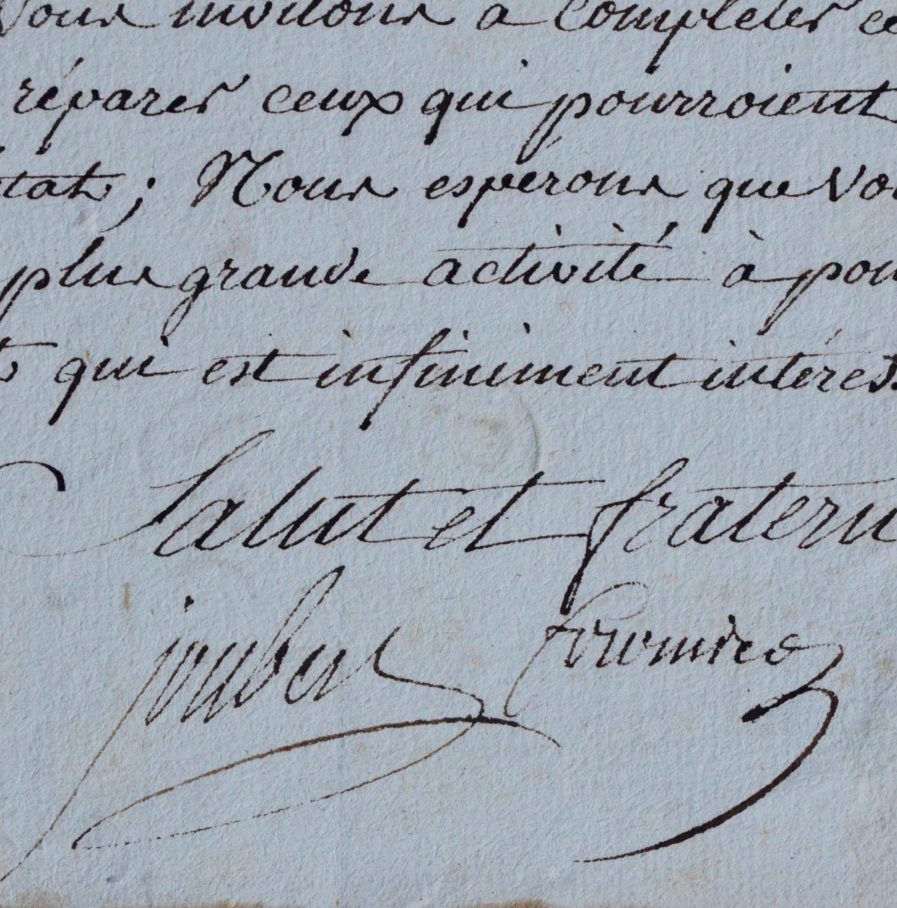 Vous invitons a Completer ce
réparer ceux qui pourroient
tat; Nous esperons que vou
plus grande activité à pou
qui est infiniment intéres
Salut et fratern
joubert